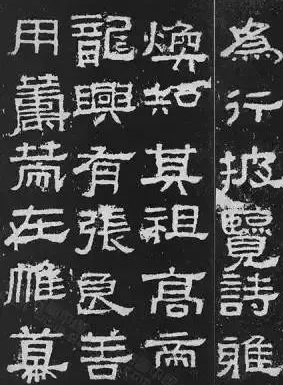 為行披覽詩雅
煥知其祖高帝
龍興有張良善
用籌策在帷幕